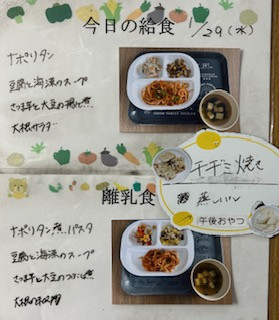 今日の給食 1/29(水)
ナポリタン
豆腐と海藻のスープ
さつま芋と大豆の揚げ煮
大根サラダ
チヂミ焼き
蒸しいも
午後おやつ
離乳食
ナポリタン風パスタ
豆腐と海藻のスープ
さつま芋と大豆のつぶし煮
大根の和え物